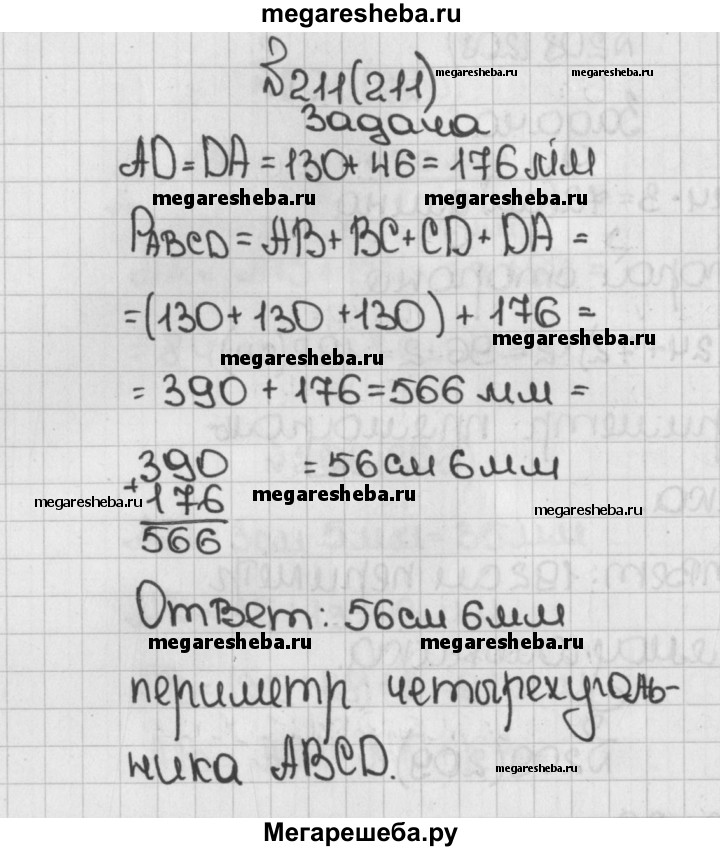 megaresheba.ru
№211(211)
megaresheba.ru megaresheba.ru
Задача
AD = DA = 130 + 46 = 176 мм
megaresheba.ru megaresheba.ru
PABCD = AB + BC + CD + DA =
= (130 + 130 + 130) + 176 =
megaresheba.ru
megaresheba.ru
= 390 + 176 = 566 мм =
390 = 56 см 6 мм
+ 176
megaresheba.ru megaresheba.ru megaresheba.ru
566
Ответ: 56 см 6 мм
megaresheba.ru megaresheba.ru
периметр четырехуголь-
ника ABCD.
megaresheba.ru
Мегарешеба.ру